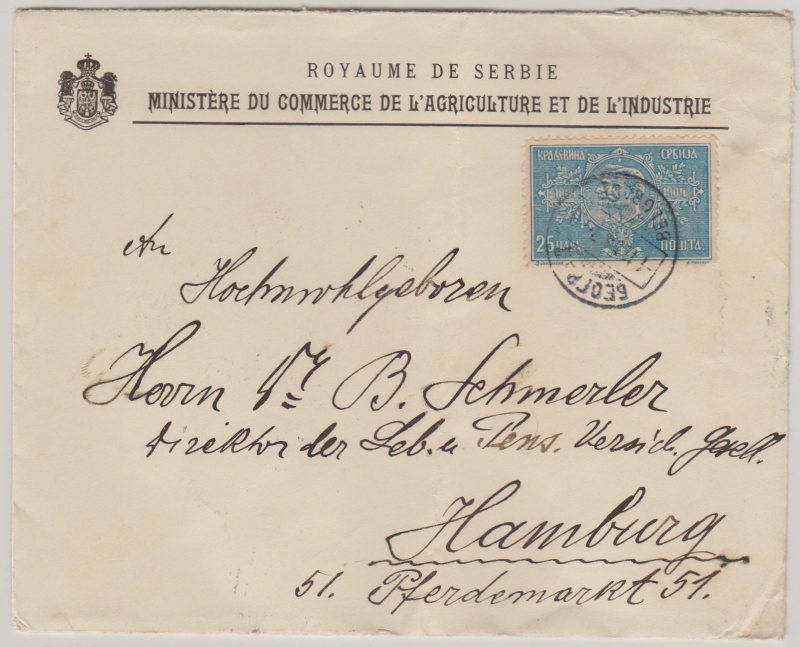 ROYAUME DE SERBIE
MINISTÈRE DU COMMERCE DE L'AGRICULTURE ET DE L'INDUSTRIE
КРАЉЕВИНА СРБИЈА
1904
25 ПАРА ПОШТА.
БЕОГР
An
Hochwohlgeboren
Herrn Dr B. Schmerler
Direktor der Leb. u Pens. Versich. Gesell.
Hamburg
51. Pferdemarkt 51.